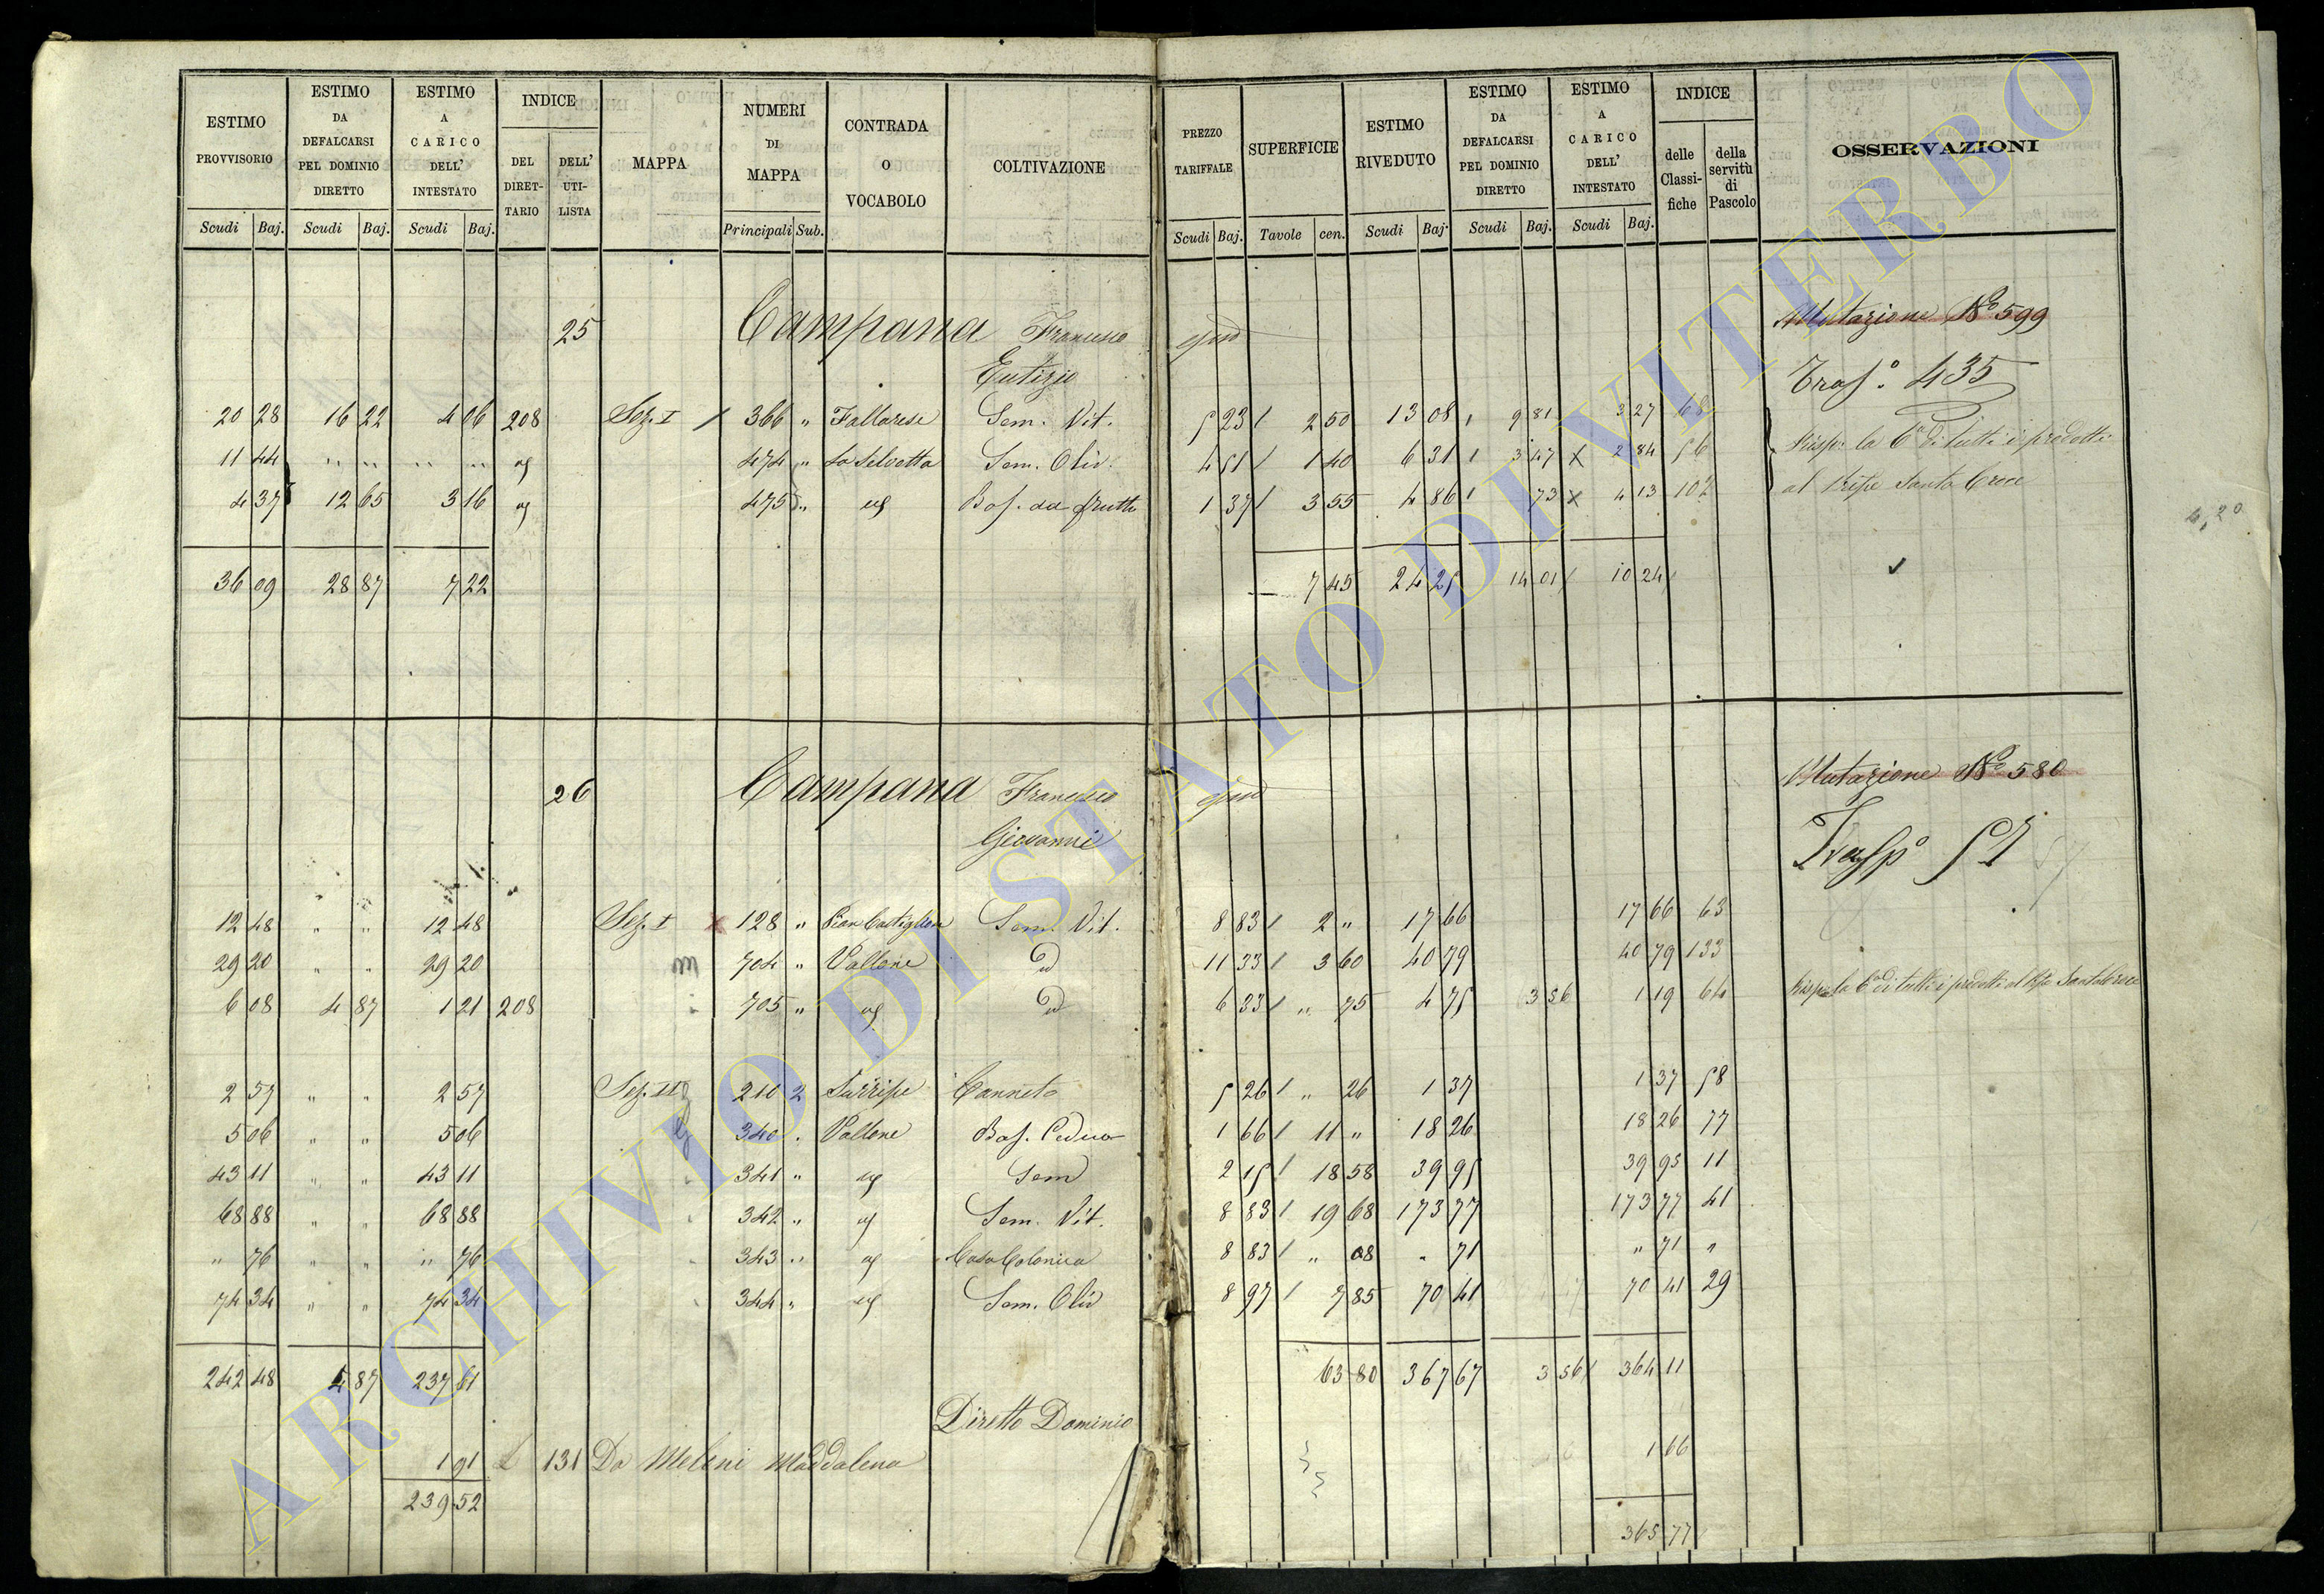 ESTIMO PROVVISORIO | ESTIMO DA DEFALCARSI PEL DOMINIO DIRETTO | ESTIMO A CARICO DELL' INTESTATO | INDICE | MAPPA | NUMERI DI MAPPA | CONTRADA O VOCABOLO | COLTIVAZIONE | PREZZO TARIFFALE | SUPERFICIE | ESTIMO RIVEDUTO | ESTIMO DA DEFALCARSI PEL DOMINIO DIRETTO | ESTIMO A CARICO DELL' INTESTATO | INDICE | OSSERVAZIONI
DEL DIRETTARIO | DELL' UTILISTA | delle Classifiche | della servitù di Pascolo
Scudi | Baj. | Scudi | Baj. | Scudi | Baj. | Principali | Sub. | Scudi | Baj. | Tavole | cen. | Scudi | Baj. | Scudi | Baj. | Scudi | Baj.
25 Campana Francesco qm Mutazione No 599
Eutizio Trasp.o 435
20 28 16 22 4 06 208 Sez. I / 366 " Fallarese Sem. Vit. 5 23 / 2 50 13 08 / 9 81 3 27 68 Risp. la 6a di tutti i prodotti
11 44 " " " " " " 474 " La Selvetta Sem. Oliv. 4 51 / 1 40 6 31 / 3 47 x 2 84 56 al Santa Croce
4 37 12 65 3 16 475 " Bos. da frutto 1 37 / 3 55 4 86 / 73 x 4 13 102
4,20
36 09 28 87 7 22 7 45 24 25 14 01 / 10 24 /
26 Campana Francesco qm Mutazione No 580
Giovanni Trasp.o 57 57
12 48 " " 12 48 Sez. I x 128 " Pian Castiglione Sem. Vit. 8 83 / 2 " 17 66 17 66 63
29 20 " " 29 20 m 704 " Vallone Id 11 33 / 3 60 40 79 40 79 133
6 08 4 87 1 21 208 705 " Id 6 33 / " 75 4 75 3 56 1 19 64 Risp. la 6a di tutti i prodotti al Santa Croce
2 57 " " 2 57 Sez. II 210 2 Surripe Canneto 5 26 / " 26 1 37 1 37 58
5 06 " " 5 06 340 . Vallone Bos. Ceduo 1 66 / 11 " 18 26 18 26 77
43 11 " " 43 11 341 " Sem 2 15 / 18 58 39 95 39 95 11
68 88 " " 68 88 342 " Sem. Vit. 8 83 / 19 68 173 77 173 77 41
" 76 " " " 76 343 " Casa Colonica 8 83 / " 08 " 71 " 71 "
74 34 " " 74 34 344 " Sem. Oliv 8 97 / 7 85 70 41 70 41 29
242 48 4 87 237 61 63 80 367 67 3 56 / 364 11
Diretto Dominio
1 91 131 Da Meloni Maddalena 1 66
239 52 365 77
ARCHIVIO DI STATO DI VITERBO